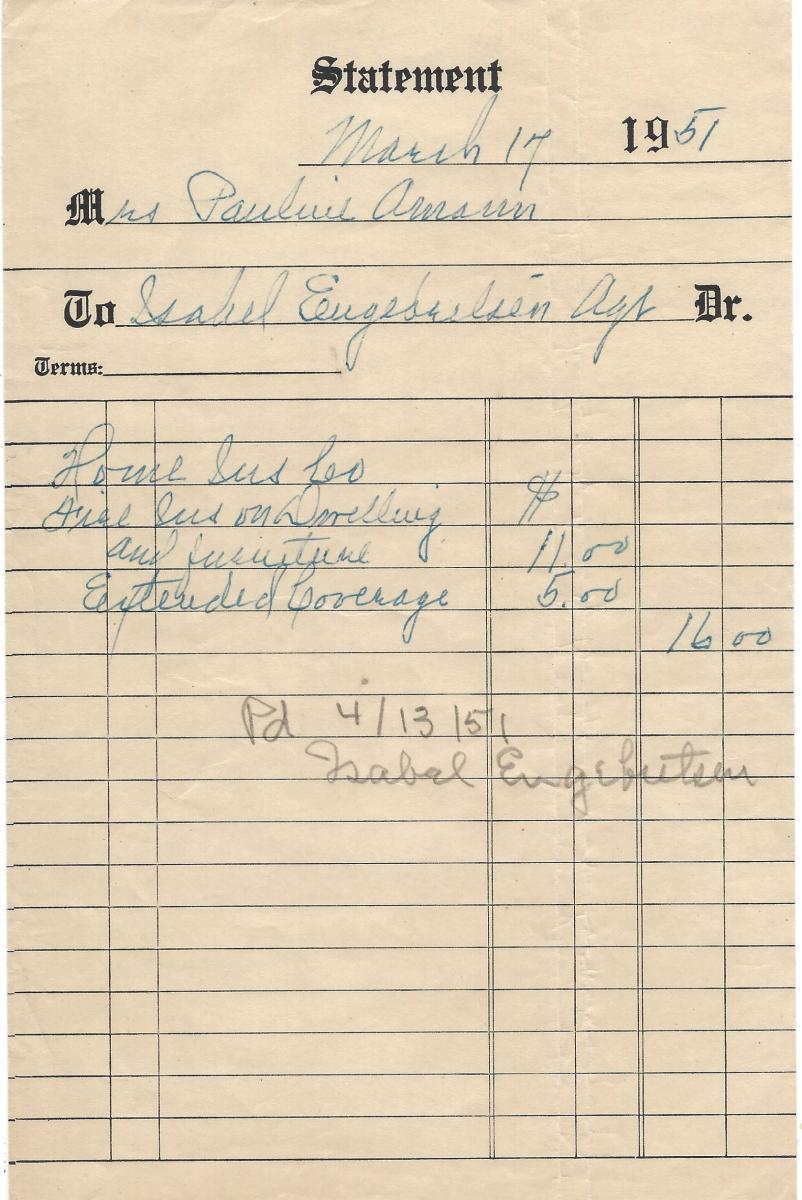 Statement
March 17 1951
Mrs Pauline Amann
To Isabel Engebretsen Agt Dr.
Terms:
Home Ins Co
Fire Ins on Dwelling $
and furniture 11.00
Extended Coverage 5.00
16 00
Pd 4/13/51
Isabel Engebretsen